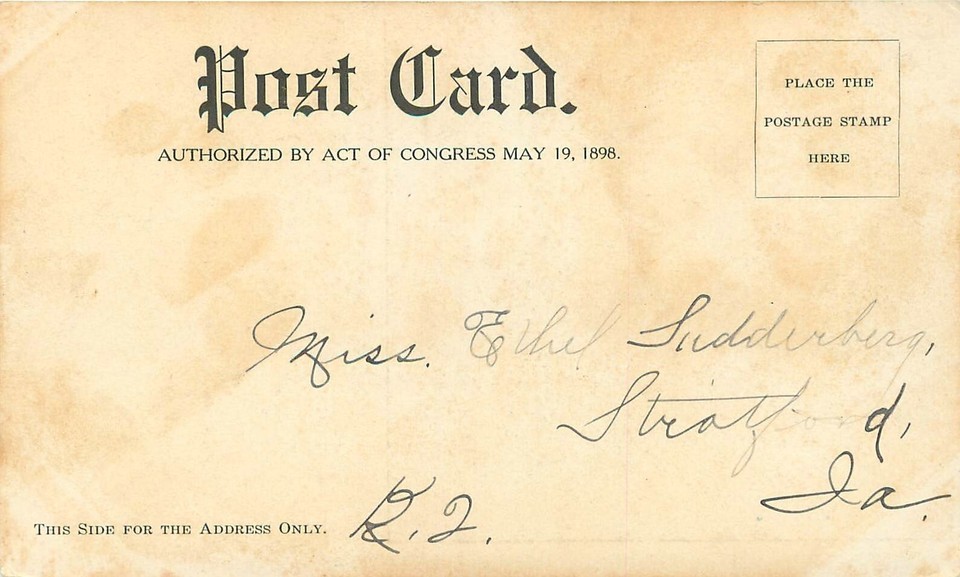 Post Card.
AUTHORIZED BY ACT OF CONGRESS MAY 19, 1898.
PLACE THE
POSTAGE STAMP
HERE
Miss. Ethel Sudderberg,
Stratford,
Ia.
THIS SIDE FOR THE ADDRESS ONLY.
R. 2.